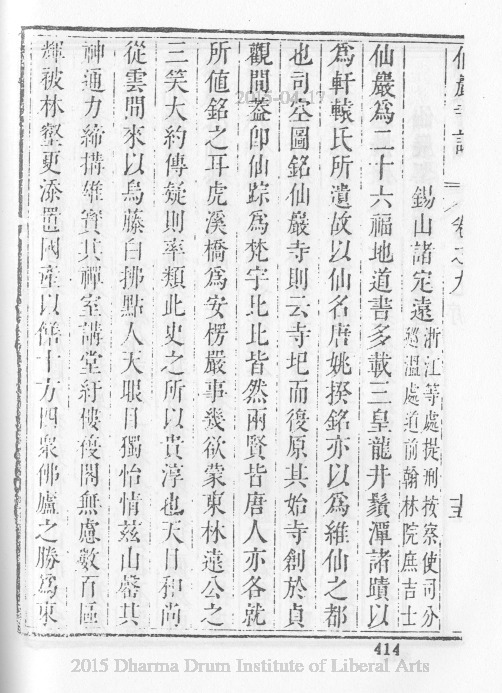 仙巖寺誌 卷之九 十五
錫山諸定遠浙江等處提刑按察使司分巡溫處道前翰林院庶吉士
仙巖爲二十六福地道書多載三皇龍井鬚潭諸蹟以
爲軒轅氏所遺故以仙名唐姚揆銘亦以爲維仙之都
也司空圖銘仙巖寺則云寺圯而復原其始寺創於貞
觀間蓋卽仙踪爲梵宇比比皆然兩賢皆唐人亦各就
所値銘之耳虎溪橋爲安楞嚴事幾欲蒙東林遠公之
三笑大約傳疑則率類此史之所以貴淳也天目和尚
從雲間來以烏藤白拂點人天眼目獨怡情茲山罄其
神通力締搆雄實其禪室講堂紆僂傻閣無慮數百區
輝被林壑更添置國産以餙十方四衆佛廬之勝爲東
2015-04-17
414
2015 Dharma Drum Institute of Liberal Arts